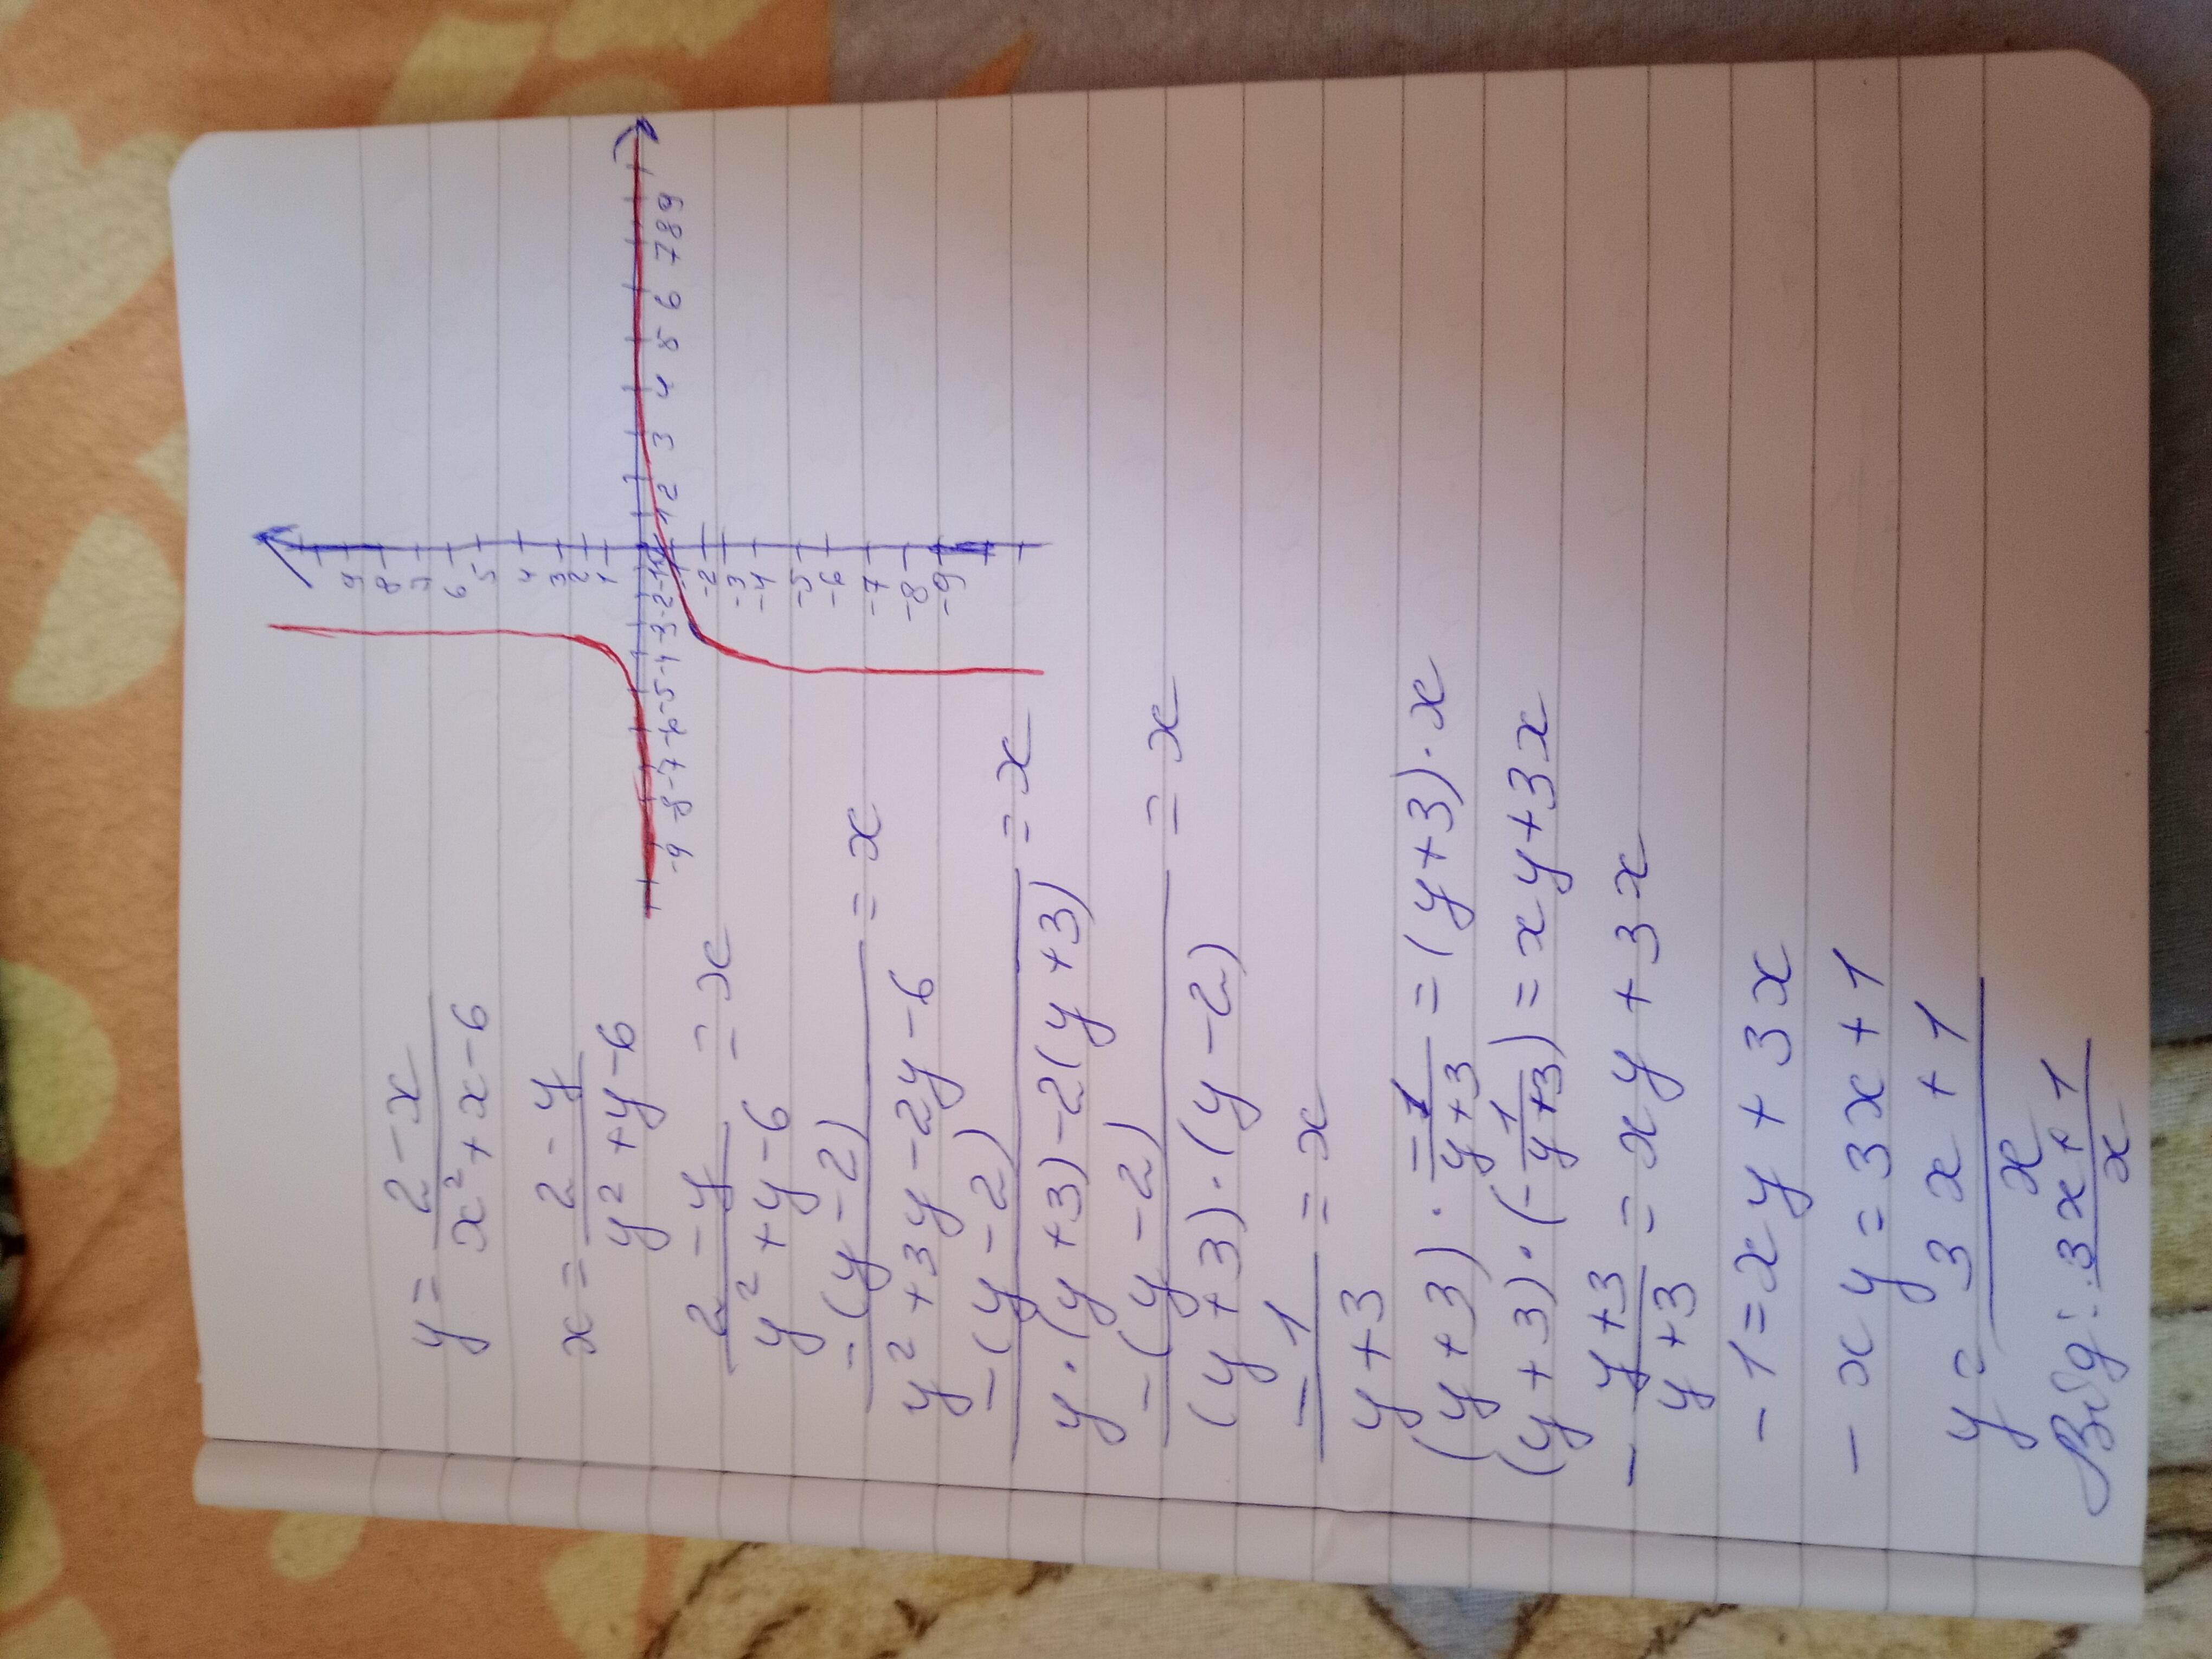 y = \frac{2-x}{x²+x-6}
x = \frac{2-y}{y²+y-6}
\frac{2-y}{y²+y-6} = x
\frac{-(y-2)}{y²+3y-2y-6} = x
\frac{-(y-2)}{y·(y+3)-2(y+3)} = x
\frac{-(y-2)}{(y+3)·(y-2)} = x
\frac{-1}{y+3} = x
(y+3)·\frac{-1}{y+3} = (y+3)·x
(y+3)·(-\frac{1}{y+3}) = xy+3x
-\frac{y+3}{y+3} = xy+3x
-1 = xy+3x
-xy = 3x+1
y = \frac{3x+1}{x}
Відg: \frac{3x+1}{x}
9
8
7
6
5
4
3
2
1
-9 -8 -7 -5 -4 -3 -2 -1 1 2 3 4 5 6 7 8 9
-2
-3
-4
-5
-6
-7
-8
-9